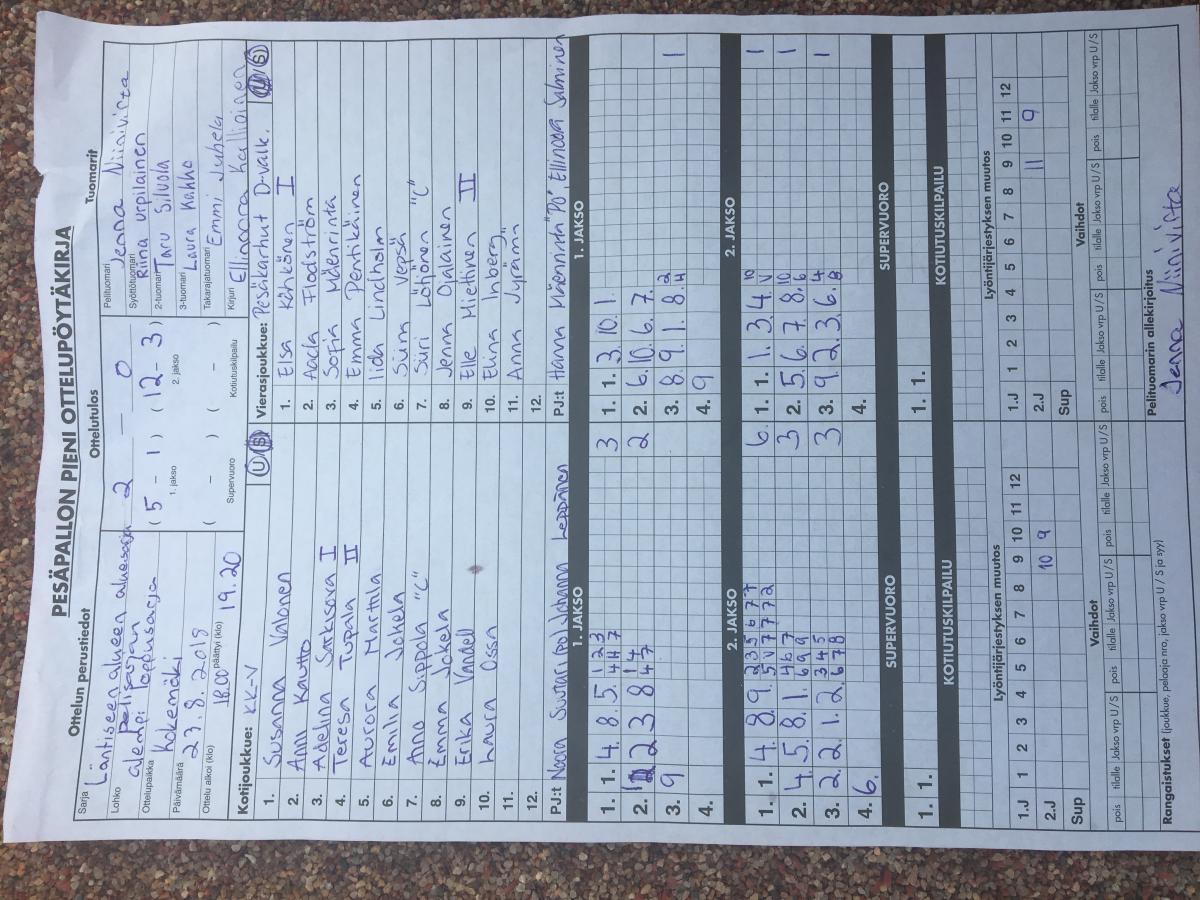 PESÄPALLON PIENI OTTELUPÖYTÄKIRJA
Ottelun perustiedot
Ottelutulos
Tuomarit
Sarja Läntisen alueen aluesarja
Lohko alempi loppusarja
Ottelupaikka Kokemäki
Päivämäärä 23.8.2018
Ottelu alkoi (klo) 18.00 päättyi (klo) 19.20
2 — 0
( 5 - 1 ) ( 12 - 3 )
1. jakso 2. jakso
( - ) ( - )
Supervuoro Kotiutuskilpailu
Pelituomari Jenna Niinivirta
Syöttötuomari Riina Urpilainen
2-tuomari Taru Silvola
3-tuomari Laura Kahho
Takarajatuomari Emmi Juhela
Kirjuri Ellinoora Kallioinen
Kotijoukkue: KK-V U S
1. Susanna Valonen
2. Ami Kautto
3. Adelina Satusava I
4. Teresa Tupala II
5. Aurora Marttila
6. Emilia Jokela
7. Ano Sippola "C"
8. Emma Jokela
9. Erika Vandell
10. Laura Ossa
11.
12.
PJ:t Noora Suutari Johanna Leppänen
Vierasjoukkue: Pesäkarhut D-valk. U S
1. Elsa Kähkönen I
2. Aada Flodström
3. Sofia Mäenrinta
4. Emma Pentikäinen
5. Iida Lindholm
6. Siiru Vepsä
7. Siiri Löhönen "C"
8. Jenna Ojalainen
9. Elle Miettinen II
10. Elina Inberg
11. Anna Jyrämä
12.
PJ:t Hanna Ellinoora Salminen
1. JAKSO
1. 1. 4. 8. 5. 1 2 3 3
4 4 7
2. 2 3 8 1 4 2
4 7
3. 9
4.
1. JAKSO
1. 1. 3. 10. 1.
2. 6. 10. 6. 7.
3. 8. 9. 1. 8. 2 1
4
4. 9
2. JAKSO
1. 1. 4. 8. 9. 2 3 5 6 7 7 6
5 V 7 7 7 2
2. 4. 5. 8. 1. 4 6 7 3
6 9 9
3. 2 2. 1. 2. 3 4 5 3
6 7 8
4. 6.
2. JAKSO
1. 1. 1. 3. 4. 10 1
V
2. 5. 6. 7. 8. 10 1
6
3. 9. 2. 3. 6. 4 1
8
4.
SUPERVUORO
1. 1.
SUPERVUORO
1. 1.
KOTIUTUSKILPAILU
KOTIUTUSKILPAILU
Lyöntijärjestyksen muutos
1.J 1 2 3 4 5 6 7 8 9 10 11 12
2.J 10 9
Sup
Lyöntijärjestyksen muutos
1.J 1 2 3 4 5 6 7 8 9 10 11 12
2.J 11 9
Sup
Vaihdot
pois tilalle Jakso vrp U/S pois tilalle Jakso vrp U/S pois tilalle Jakso vrp U/S
Vaihdot
pois tilalle Jakso vrp U/S pois tilalle Jakso vrp U/S pois tilalle Jakso vrp U/S
Rangaistukset (joukkue, pelaaja nro, jakso vrp U / S ja syy)
Pelituomarin allekirjoitus
Jenna Niinivirta